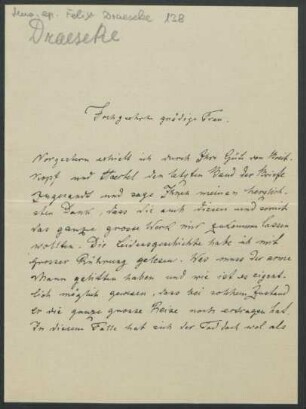 Mus. ep. Felix Draeseke 138
Draeseke
Hochgeehrte gnädige Frau.
Vorgestern erhielt ich durch Ihre Güte von Breit-
kopf und Haertel den letzten Band der Briefe
zugesandt und sage Ihnen meinen herzlich-
sten Dank, dass Sie auch diesen und somit
das ganze grosse Werk mir zukommen lassen
wollten. Die Leidensgeschichte habe ich mit
grosser Rührung gelesen. Was muss der arme
Mann gelitten haben und wie ist es eigent-
lich möglich gewesen, dass bei solchem Zustand
er die ganze grosse Reise noch ertragen hat.
In diesem Falle hat sich der Tod doch wol als